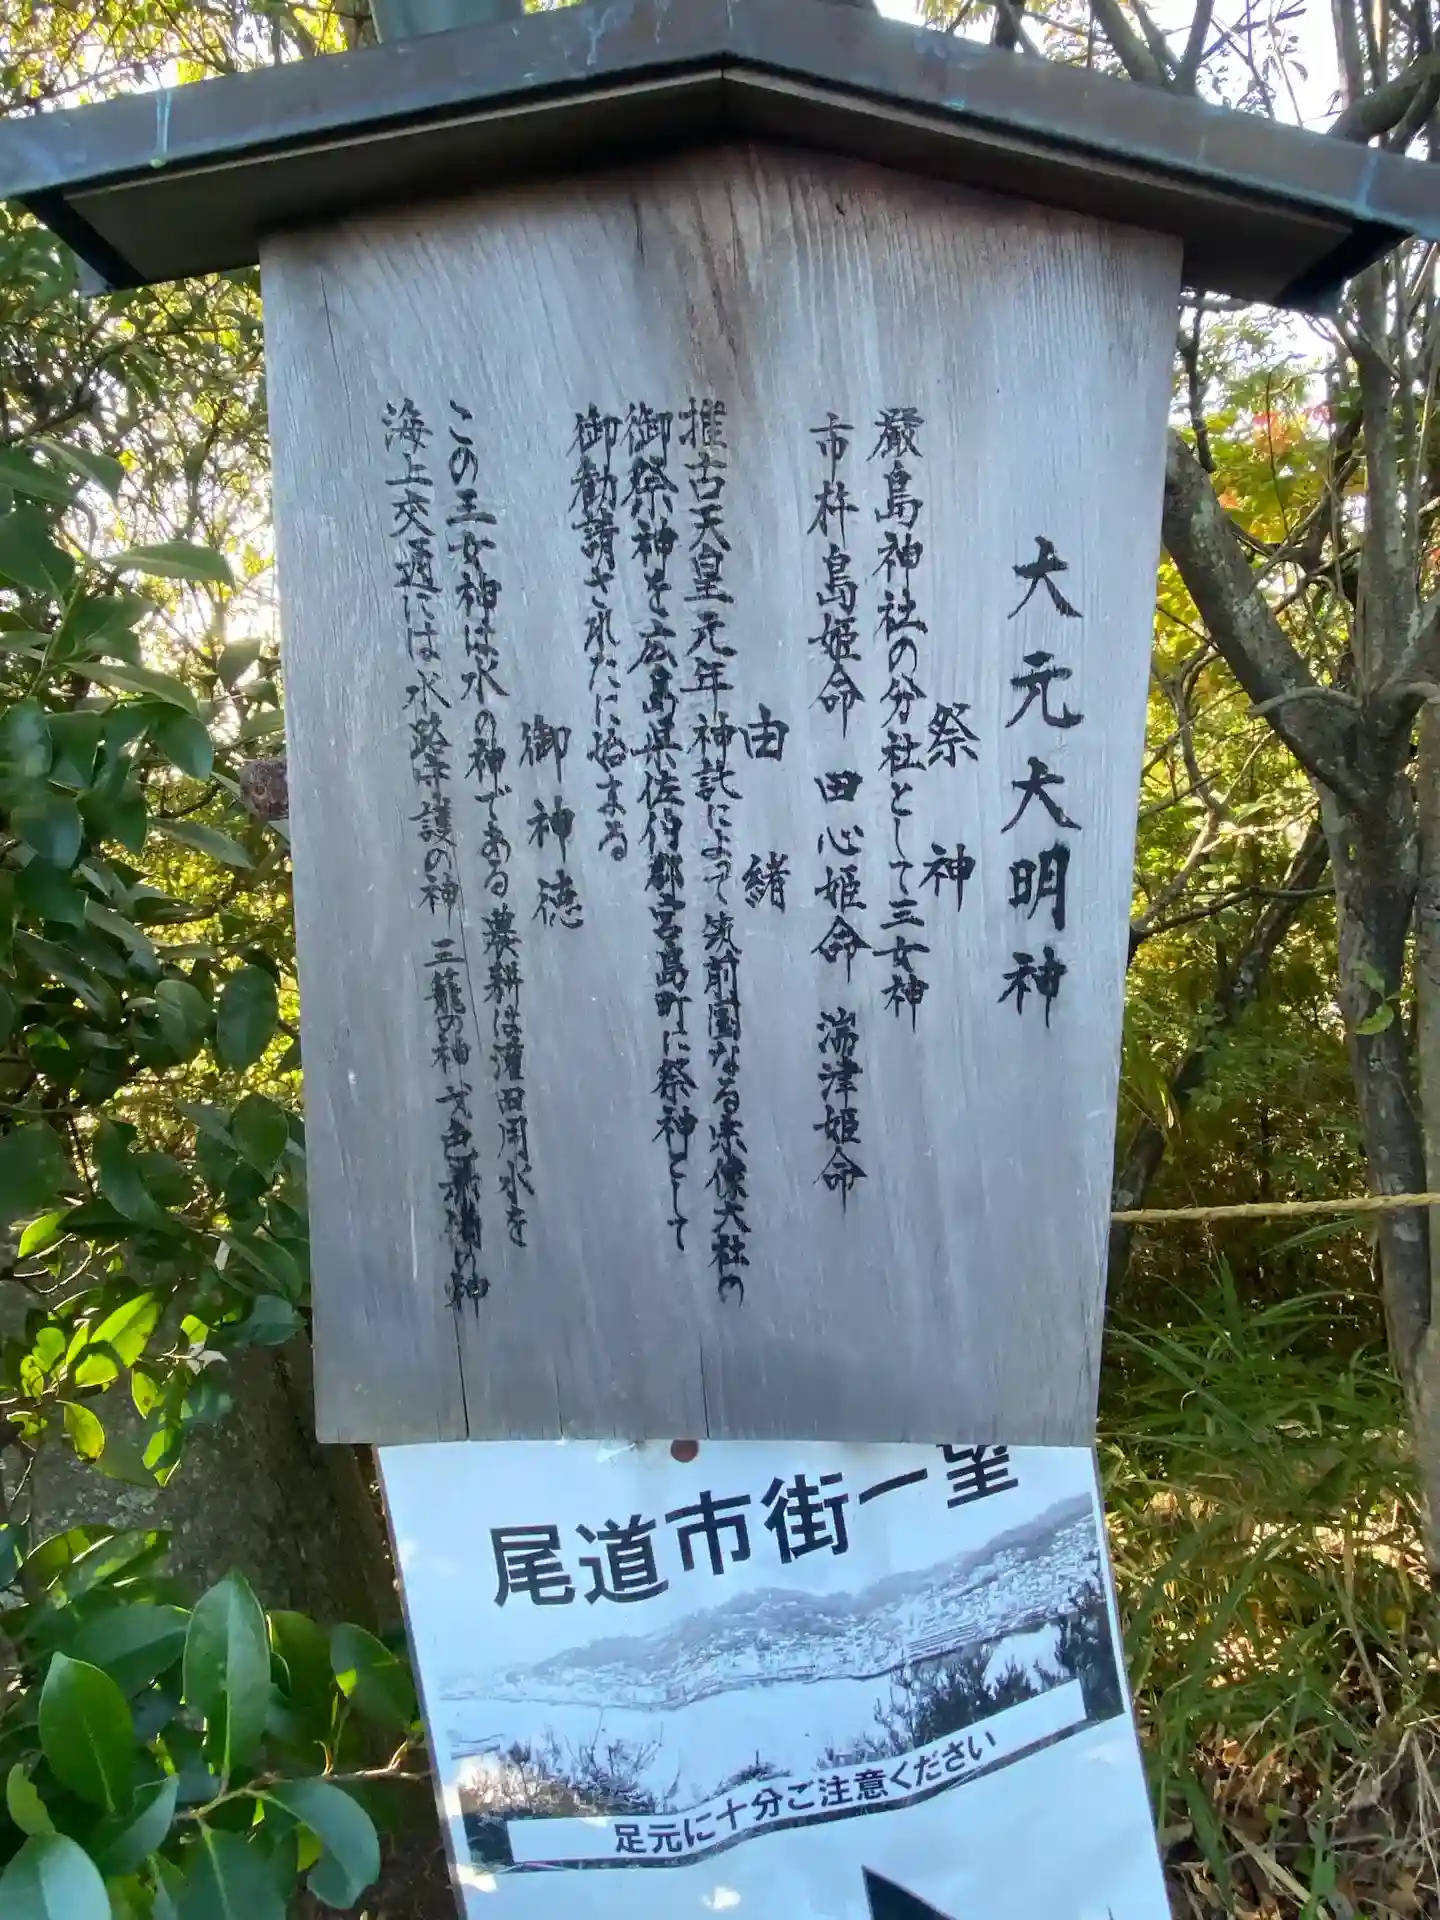 大元大明神
祭神
厳島神社の分社として三女神
市杵島姫命 田心姫命 湍津姫命
由緒
推古天皇元年神託によって筑前国なる宗像大社の
御祭神を広島県佐伯郡宮島町に祭神として
御勧請されたに始まる
御神徳
この三女神は水の神である農耕は灌田用水を
海上交通には水路守護の神 三籠の神 弐色
の神
尾道市街一望
足元に十分ご注意ください